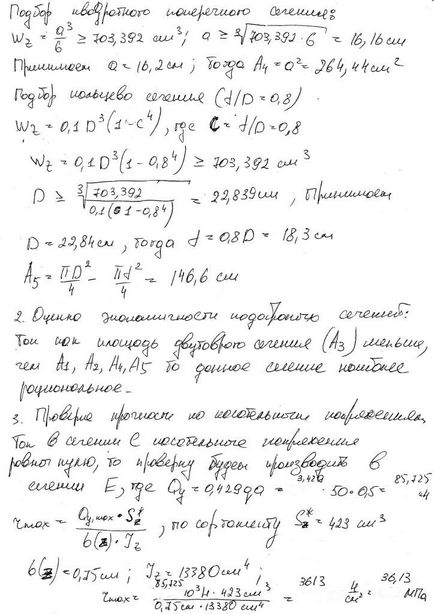 Подбор квадратного поперечного сечения:
Wz = a³/6 ≥ 703,392 см³; a ≥ ∛(703,392·6) = 16,16 см
Принимаем a = 16,2 см; тогда A4 = a² = 264,44 см²
Подбор кольцево сечения (d/D = 0,8)
Wz = 0,1 D³(1-c⁴), где C = d/D = 0,8
Wz = 0,1 D³(1-0,8⁴) ≥ 703,392 см³
D ≥ ∛(703,392 / 0,1(1-0,8⁴)) = 22,839 см, Принимаем
D = 22,84 см, тогда d = 0,8D = 18,3 см
A5 = πD²/4 - πd²/4 = 146,6 см
2. Оценка экономичности подобранных сечений:
Так как площадь двутаврого сечения (A3) меньше,
чем A1, A2, A4, A5 то данное сечение наиболее
рациональное.
3. Проверка прочности по касательным напряжениям
Так в сечении C касательное напряжения
равно нулю, то проверку будем производить в
сечении E, где Qy = 0,429qa = 3,429 · 50·0,5 = 85,725 кН
τmax = Qy,max · Sz* / b(z) · Iz, по сортаменту Sz* = 423 см³
b(z) = 0,75 см; Iz = 13380 см⁴;
τmax = 85,725 · 10³ Н · 423 см³ / 0,75 см · 13380 см⁴ = 3613 Н/см² = 36,13 МПа